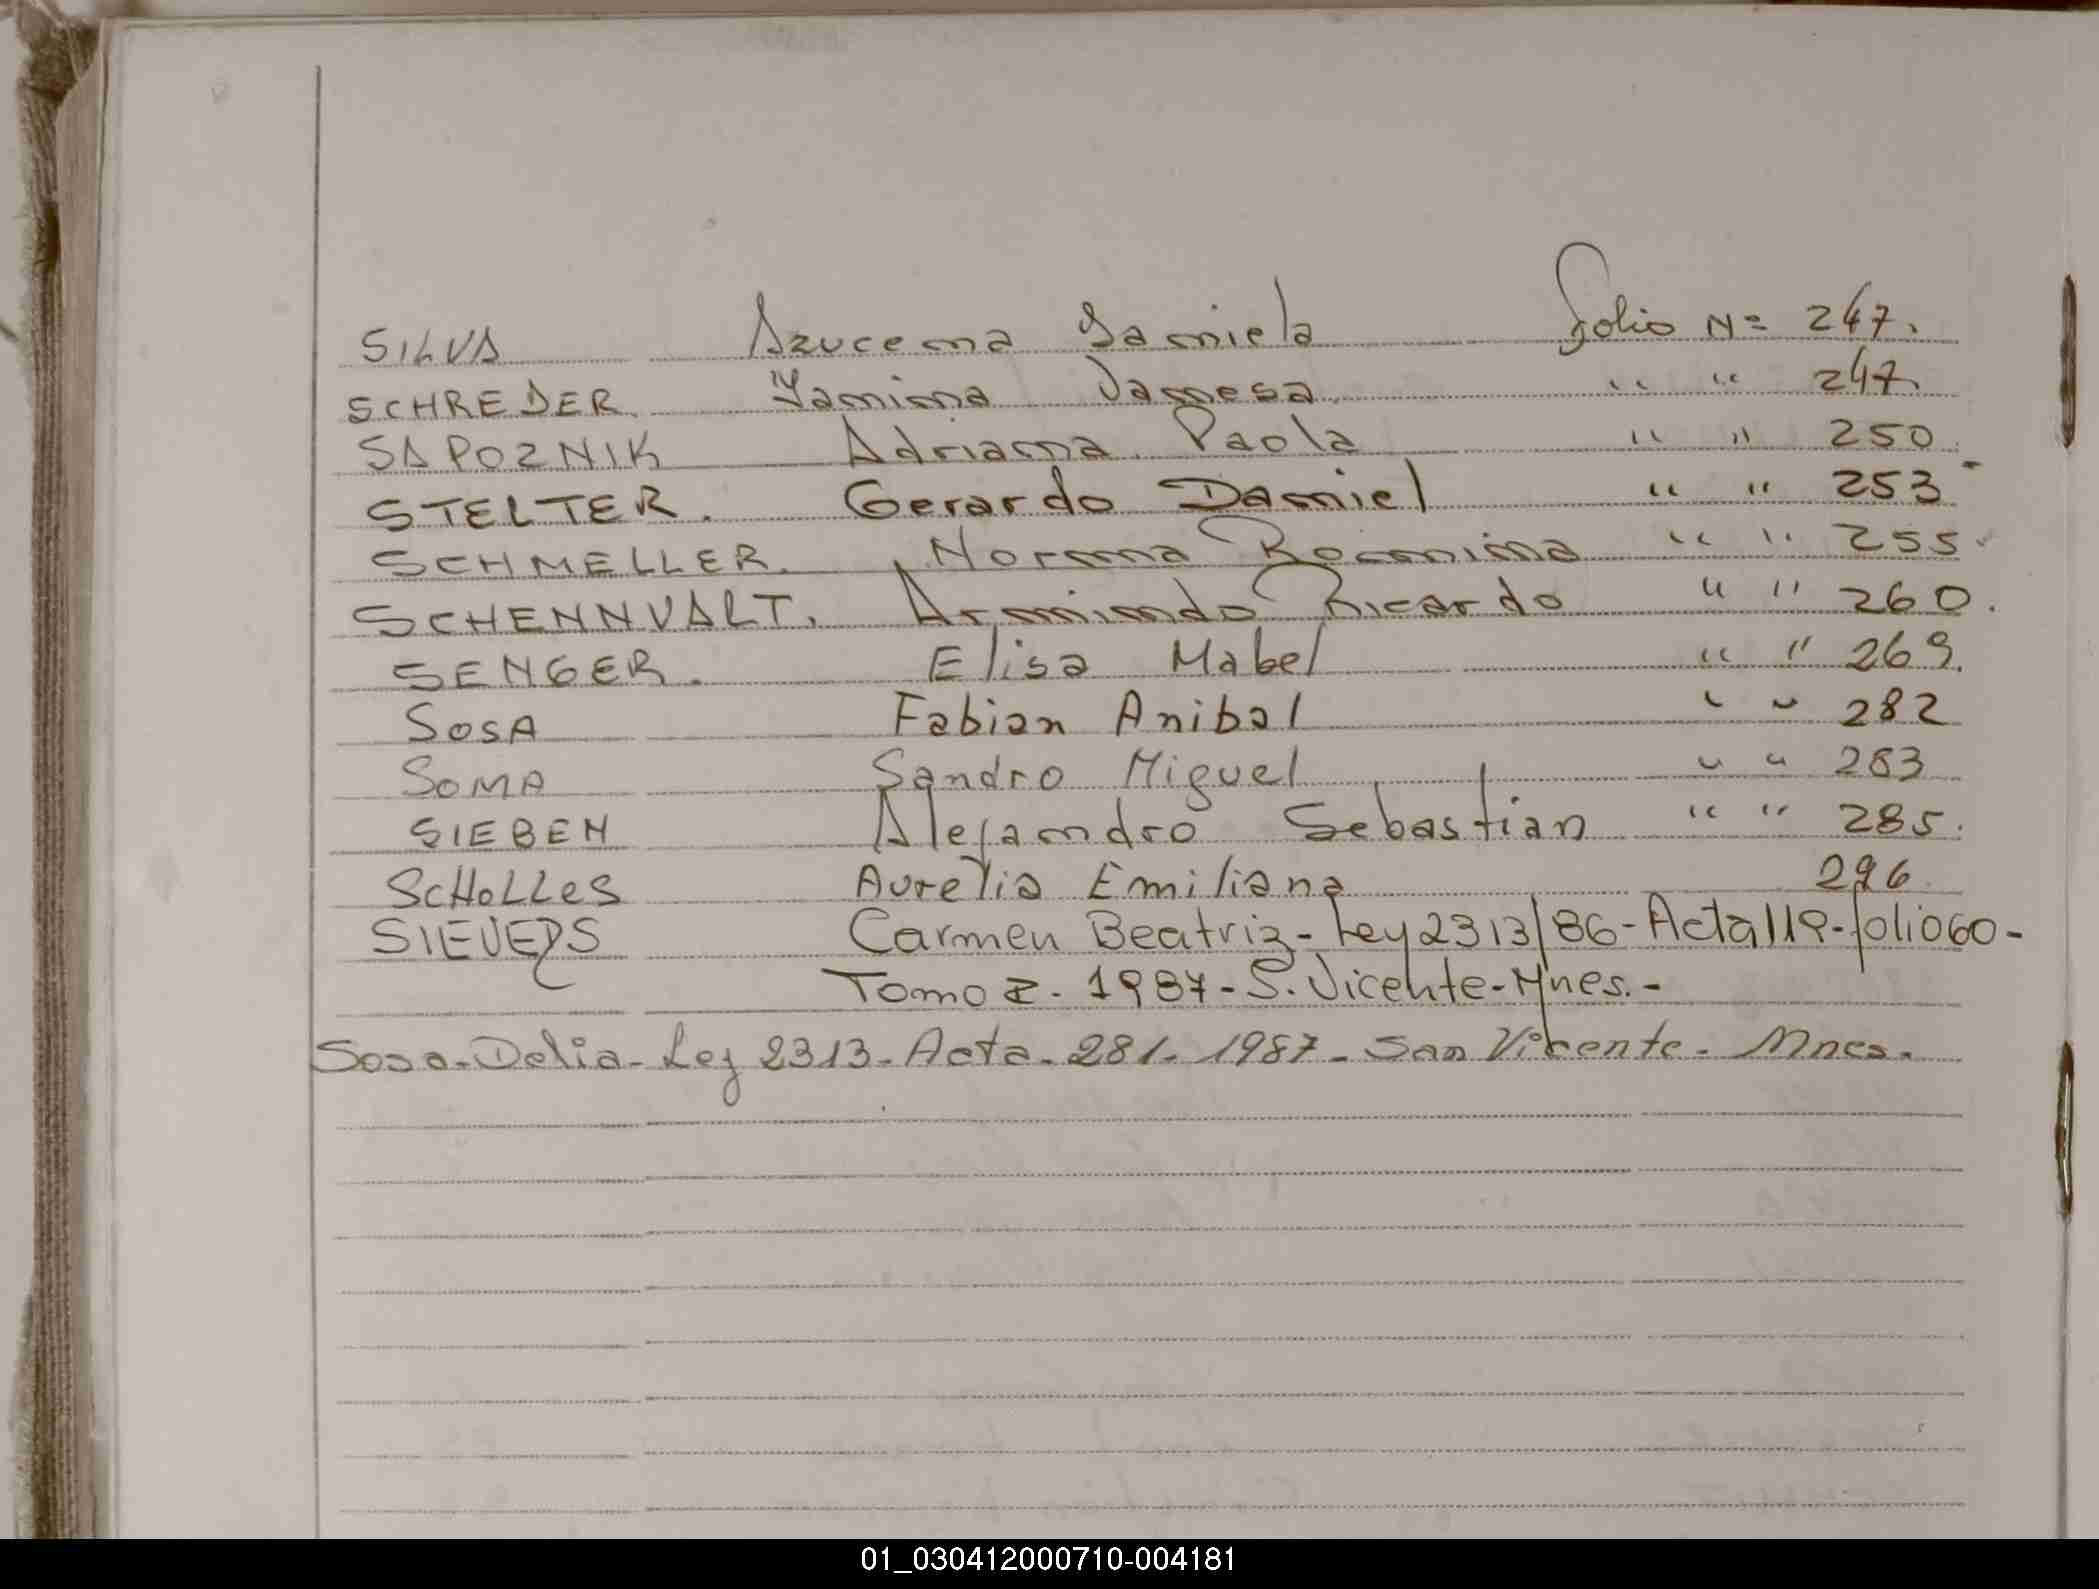 SILVA Azucena Daniela Folio Nº 247.
SCHREDER. Yanina Vanesa. " " 247.
SAPOZNIK Adriana Paola " " 250.
STELTER. Gerardo Daniel " " 253
SCHMELLER. Norma Romina " " 255
SCHENNVALT. Armindo Ricardo " " 260.
SENGER. Elisa Mabel " " 269.
SOSA Fabian Anibal " " 282
SOMA Sandro Miguel " " 283
SIEBEN Alejandro Sebastian " " 285.
SCHOLLES Aurelia Emiliana 296
SIEVERS Carmen Beatriz - Ley 2313/86 - Acta 119 - folio 60 -
Tomo 2. 1987 - S. Vicente - Mnes. -
Sosa - Delia - Ley 2313 - Acta - 281. 1987 - San Vicente - Mnes.
01_030412000710-004181